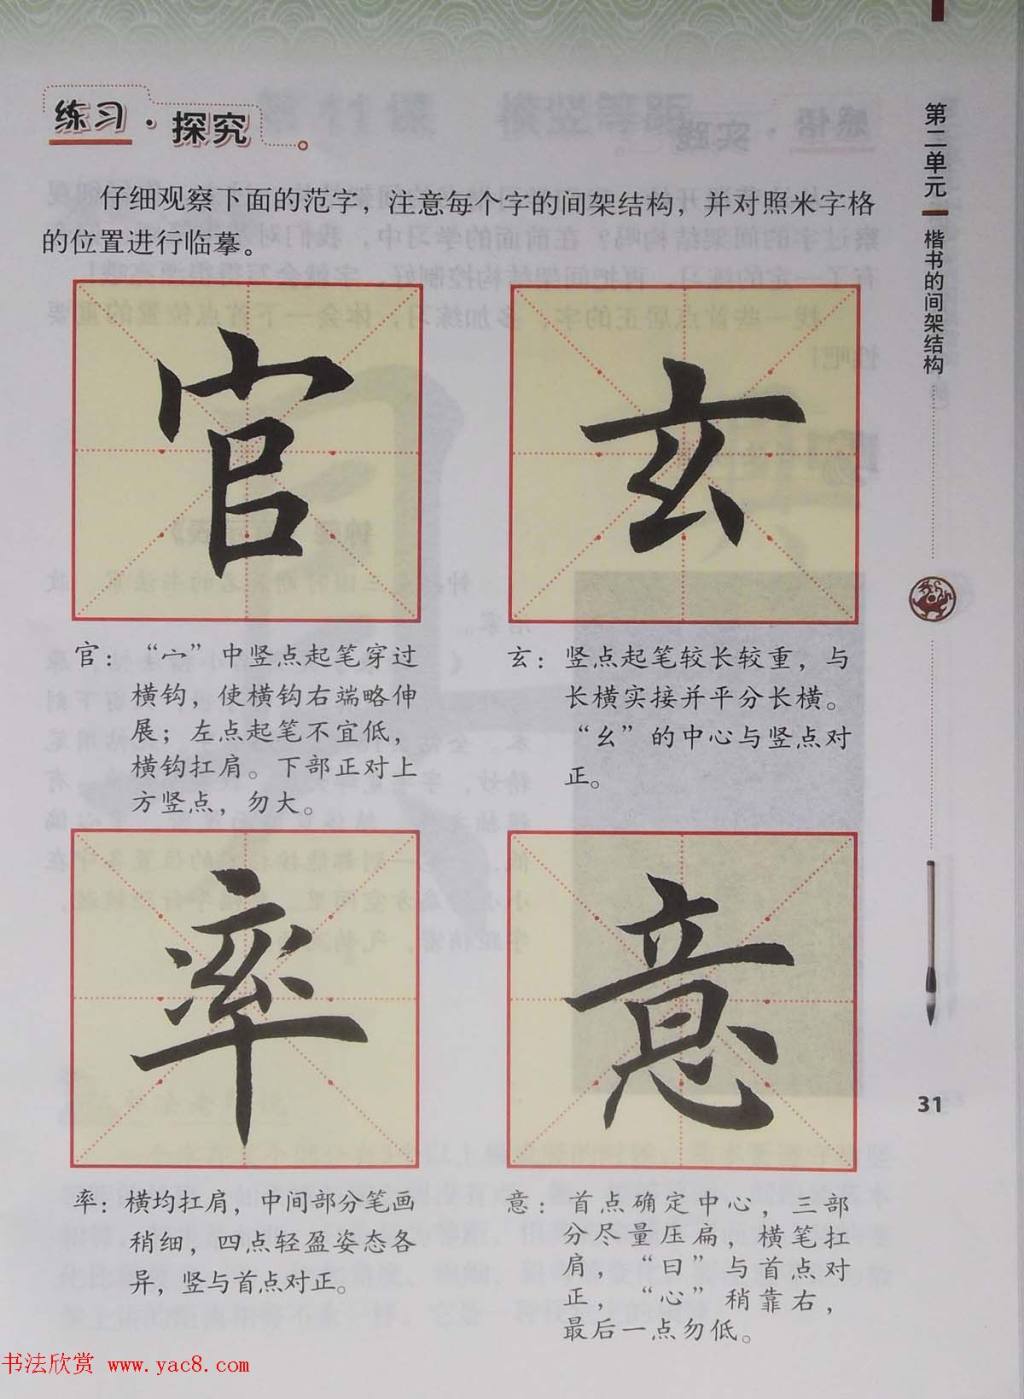 练习·探究
仔细观察下面的范字，注意每个字的间架结构，并对照米字格
的位置进行临摹。
官
玄
官：“宀”中竖点起笔穿过
横钩，使横钩右端略伸
展；左点起笔不宜低，
横钩扛肩。下部正对上
方竖点，勿大。
玄：竖点起笔较长较重，与
长横实接并平分长横。
“幺”的中心与竖点对
正。
率
意
率：横均扛肩，中间部分笔画
稍细，四点轻盈姿态各
异，竖与首点对正。
意：首点确定中心，三部
分尽量压扁，横笔扛
肩，“曰”与首点对
正，“心”稍靠右，
最后一点勿低。
第二单元 楷书的间架结构
31
书法欣赏 www.yac8.com